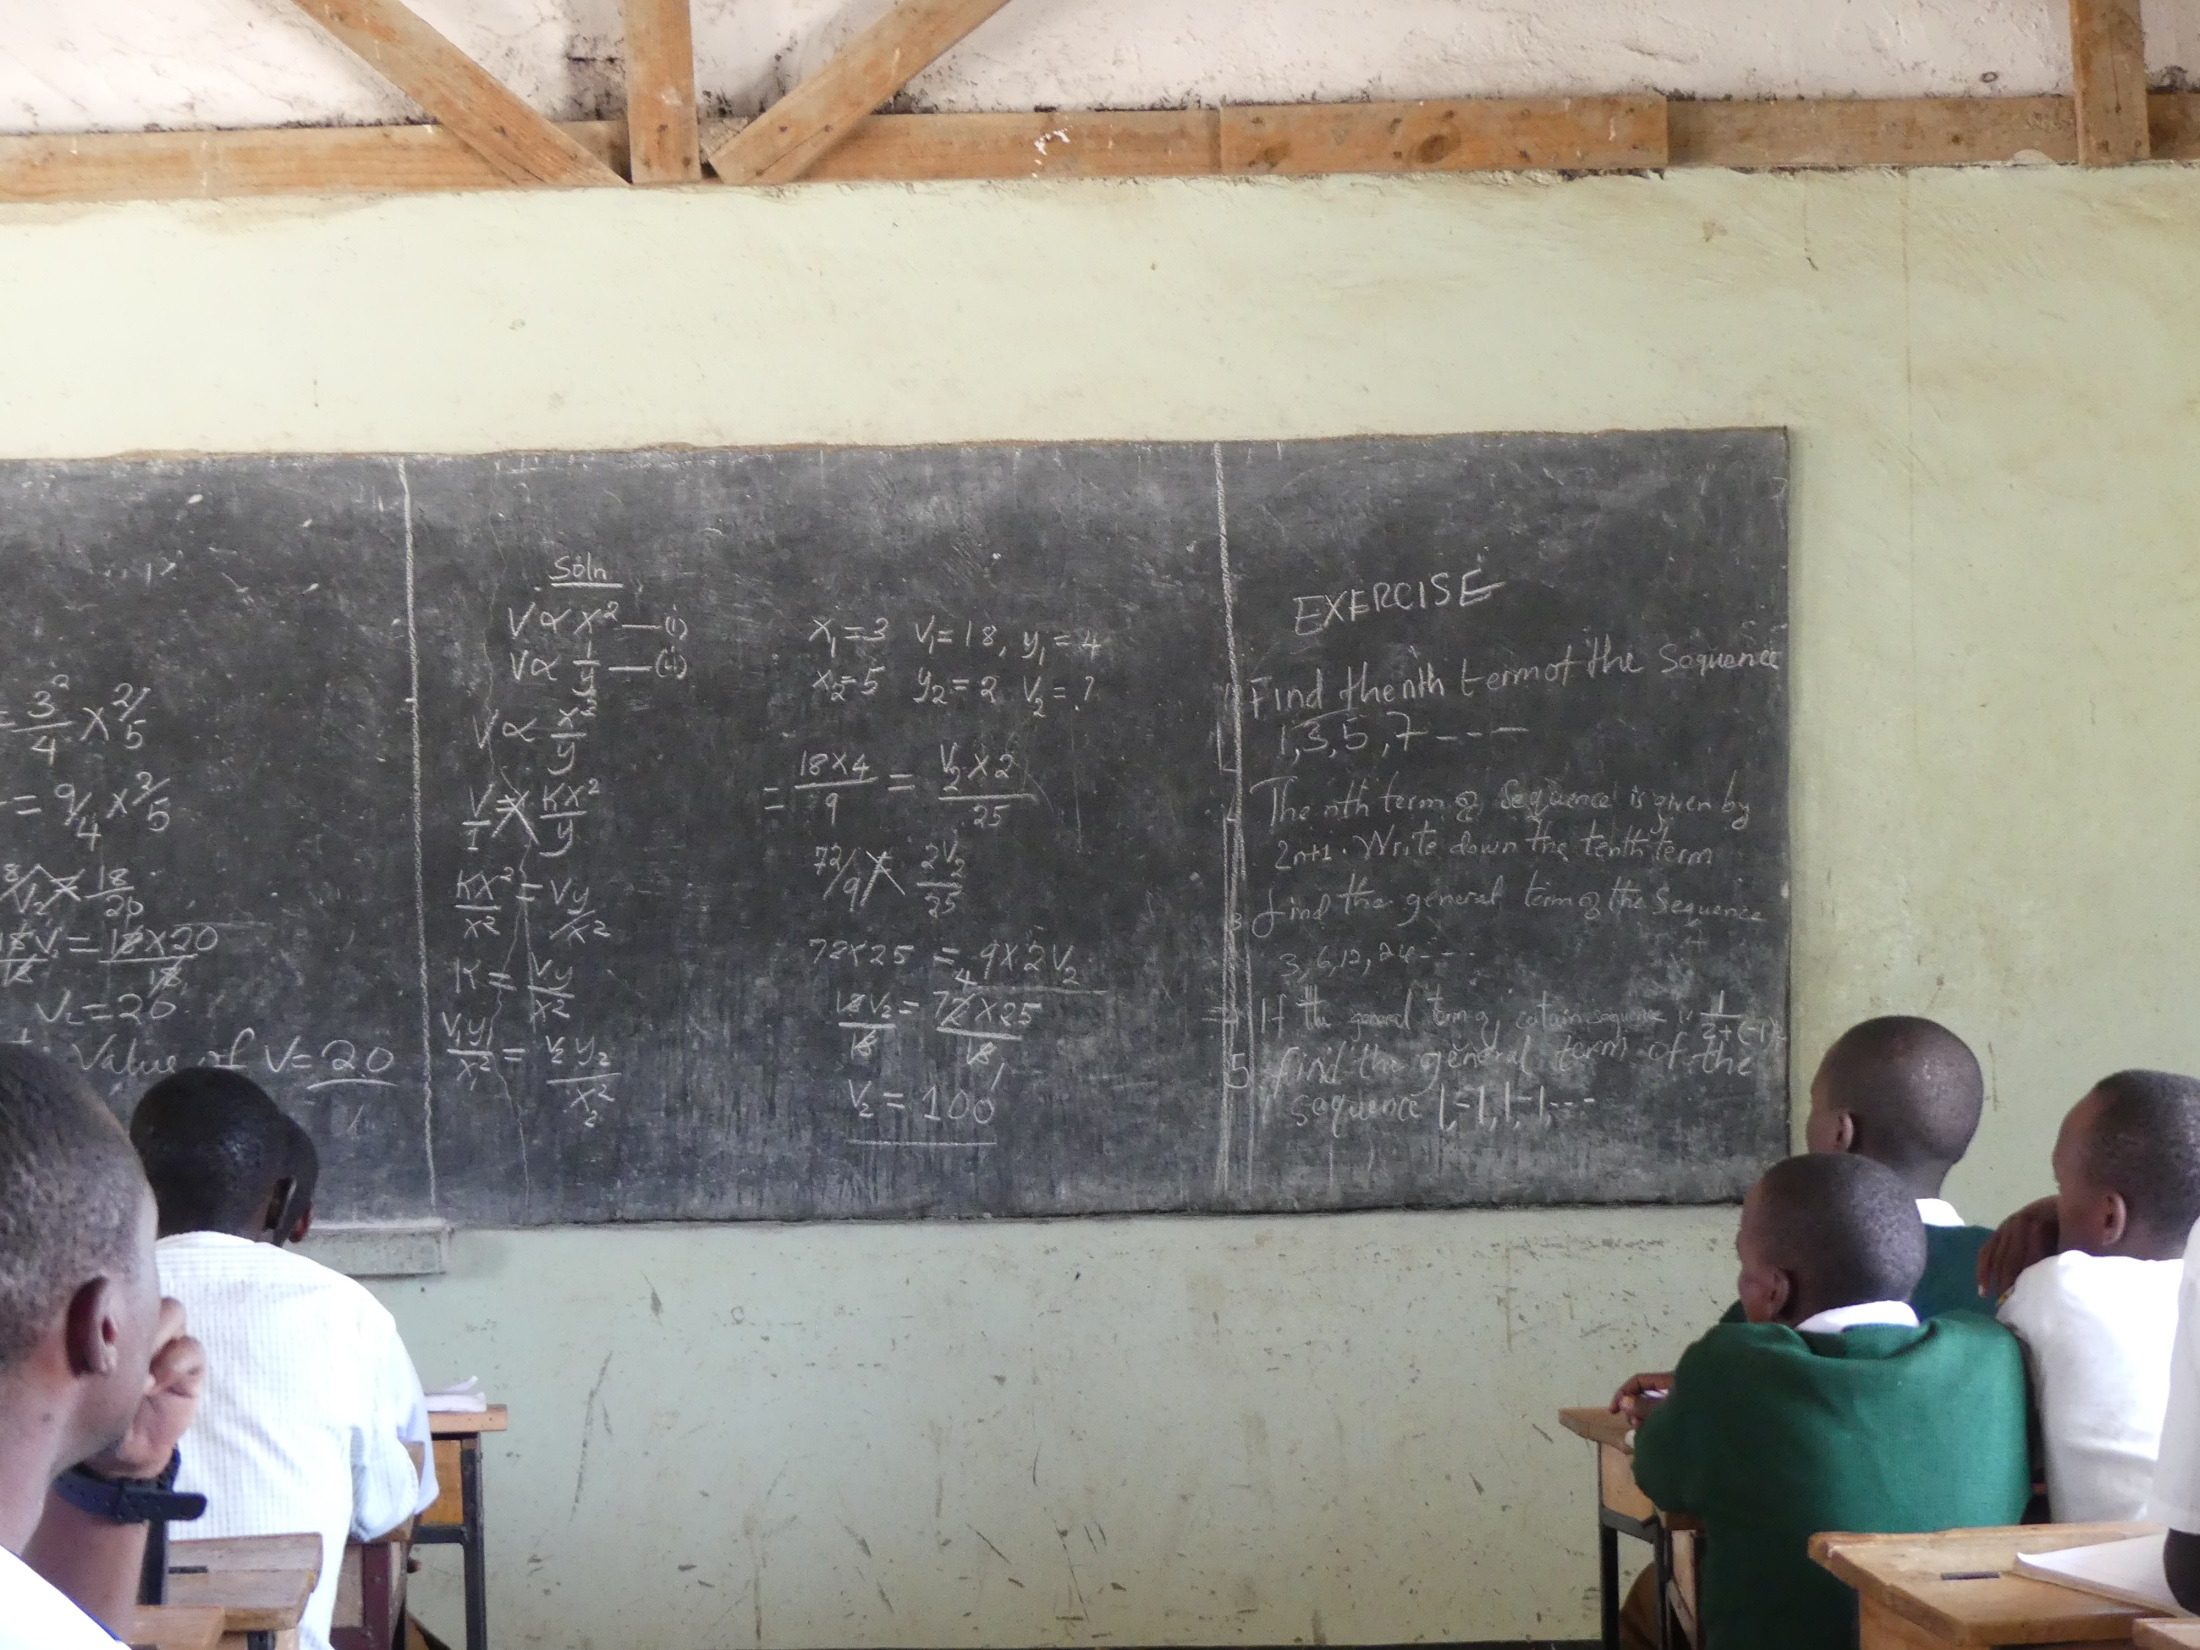 = 3²/4 × 2/5
= 9/4 × 2/5
18/V₂ × 18/20
18V₂/18 = 18×20/18
V₂=20
Value of V=20
Soln
V∝x² —(i)
V∝ 1/y —(ii)
V∝ x²/y
V/1 = Kx²/y
Kx²/x² = Vy/x²
K = Vy/x²
V₁y₁/x₁² = V₂y₂/x₂²
x₁=3 V₁=18, y₁=4
x₂=5 y₂=2 V₂=?
= 18×4/9 = V₂×2/25
72/9 2V₂/25
72×25 = 9×2V₂
18V₂/18 = 4 72×25/18 1
V₂ = 100
EXERCISE
Find the nth term of the Sequence
1,3,5,7----
2 The nth term of Sequence is given by
2n+1. Write down the tenth term
3 find the general term of the Sequence
3,6,12,24---
If the general term of certain sequence is 1/2+(-1)
5 find the general term of the
sequence 1,-1,1,-1,---